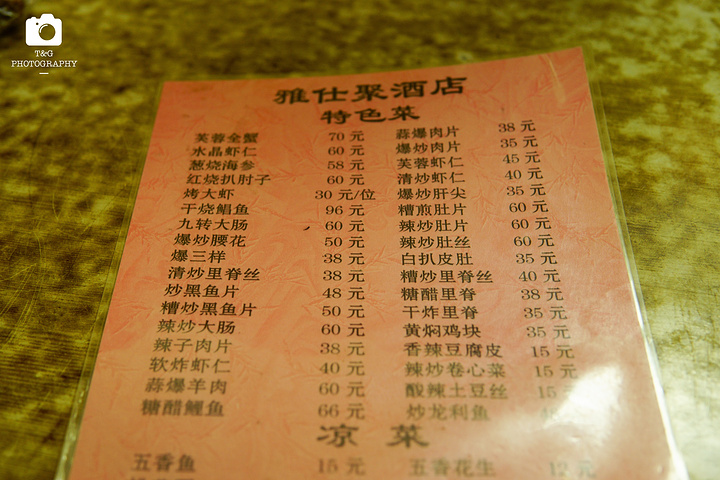 T&G
PHOTOGRAPHY
雅仕聚酒店
特色菜
芙蓉全蟹 70 元 蒜爆肉片 38 元
水晶虾仁 60 元 爆炒肉片 35 元
葱烧海参 58 元 芙蓉虾仁 45 元
红烧扒肘子 60 元 清炒虾仁 40 元
烤大虾 30 元/位 爆炒肝尖 35 元
干烧鲳鱼 96 元 糟煎肚片 60 元
九转大肠 60 元 辣炒肚片 60 元
爆炒腰花 50 元 辣炒肚丝 60 元
爆三样 38 元 白扒皮肚 35 元
清炒里脊丝 38 元 糟炒里脊丝 40 元
炒黑鱼片 48 元 糖醋里脊 38 元
糟炒黑鱼片 50 元 干炸里脊 35 元
辣炒大肠 60 元 黄焖鸡块 35 元
辣子肉片 38 元 香辣豆腐皮 15 元
软炸虾仁 40 元 辣炒卷心菜 15 元
蒜爆羊肉 60 元 酸辣土豆丝 15
糖醋鲤鱼 66 元 炒龙利鱼
凉菜
五香鱼 15 元 五香花生 12 元